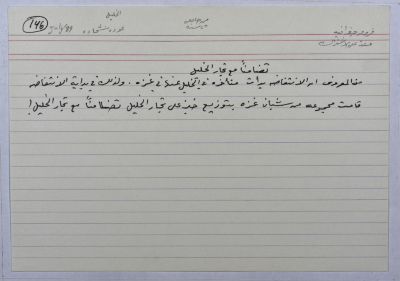 146
الخليل
تضامناً مع تجار الخليل
من المعروف ان الانتفاضه بدأت متأخره في الخليل عنها في غزه ، ولذلك في بداية الانتفاضه
قامت مجموعه من شبان غزه بتوزيع خبز على تجار الخليل تضامناً مع تجار الخليل!